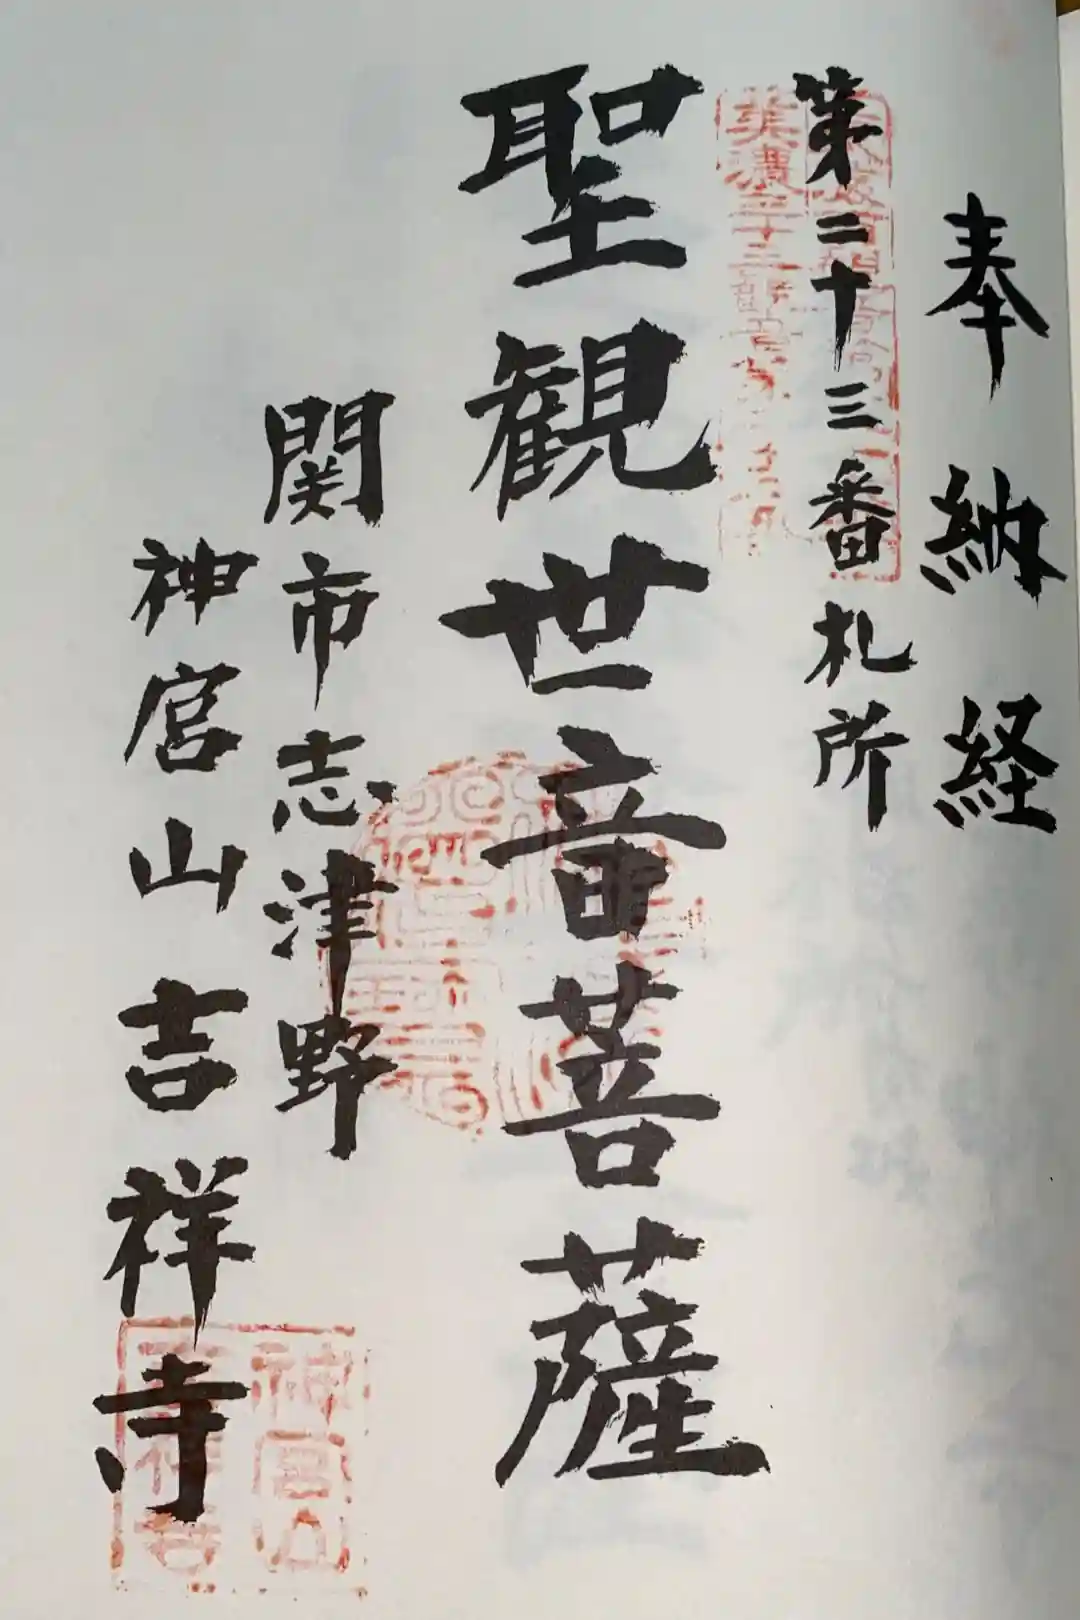 奉納経
第二十三番札所
聖観世音菩薩
関市志津野
神宮山吉祥寺
美濃三十三
神宮山